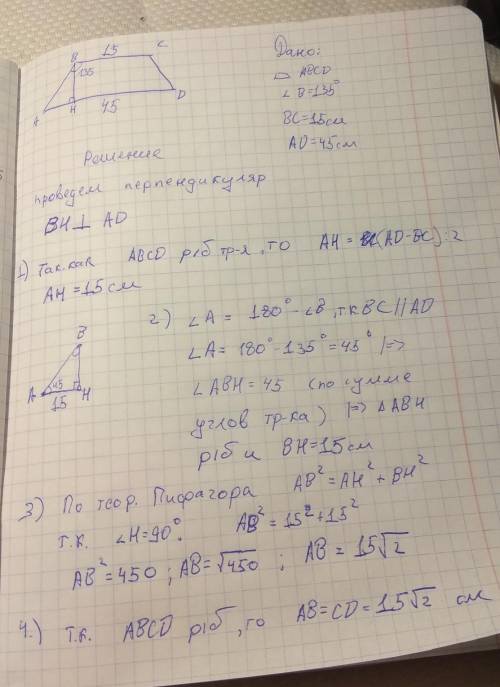 15
B C
135
H 45 D
A
Дано:
▱ ABCD
∠B=135°
BC=15см
AD=45см
Решение
проведем перпендикуляр
BH⊥ AD
1) Так.как ABCD р/б тр-я, то AH = (AD-BC):2
AH =15см
2) ∠A = 180°-∠B, т.к BC||AD
∠A= 180°-135°=45° |=>
∠ABH=45 (по сумме
углов тр-ка) |=> △ABH
р/б и BH=15см
B
A 45 H
15
3) По теор. Пифагора AB²=AH²+BH²
т.к. ∠H=90°. AB²=15²+15²
AB²=450; AB=√450; AB=15√2
4.) т.к. ABCD р/б, то AB=CD=15√2 см